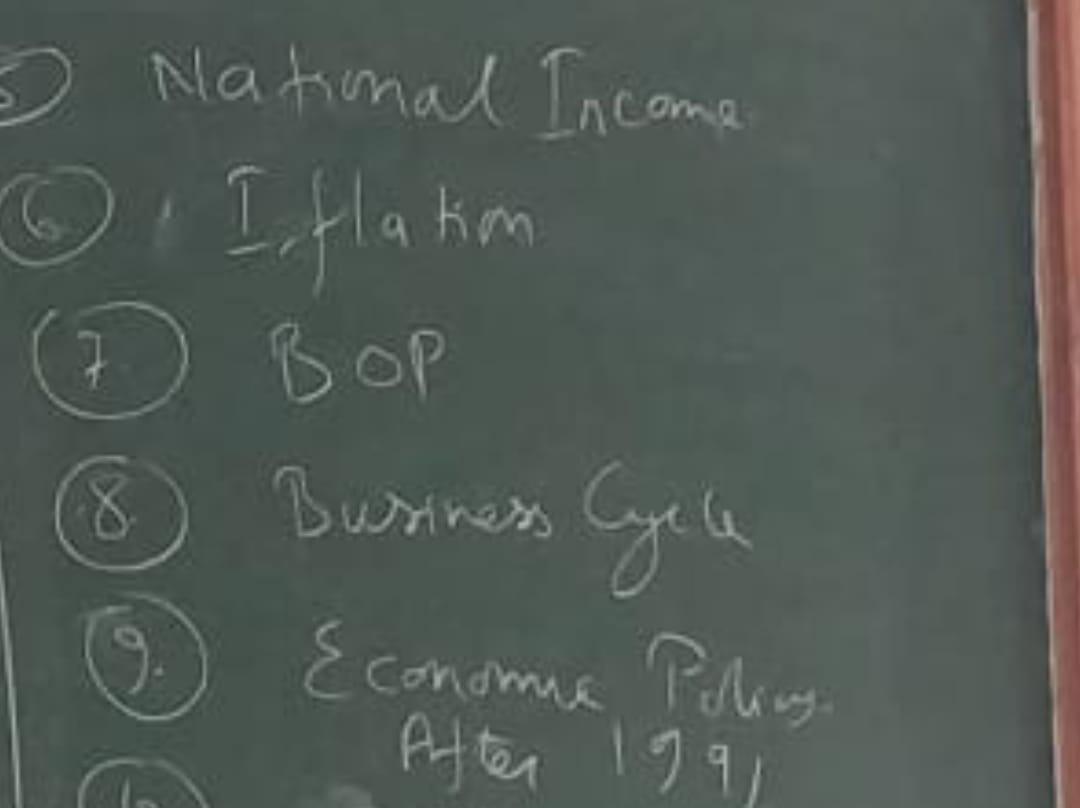 5 National Income
6 Inflation
7 BOP
8 Business Cycle
9. Economic Policy
After 1991
10